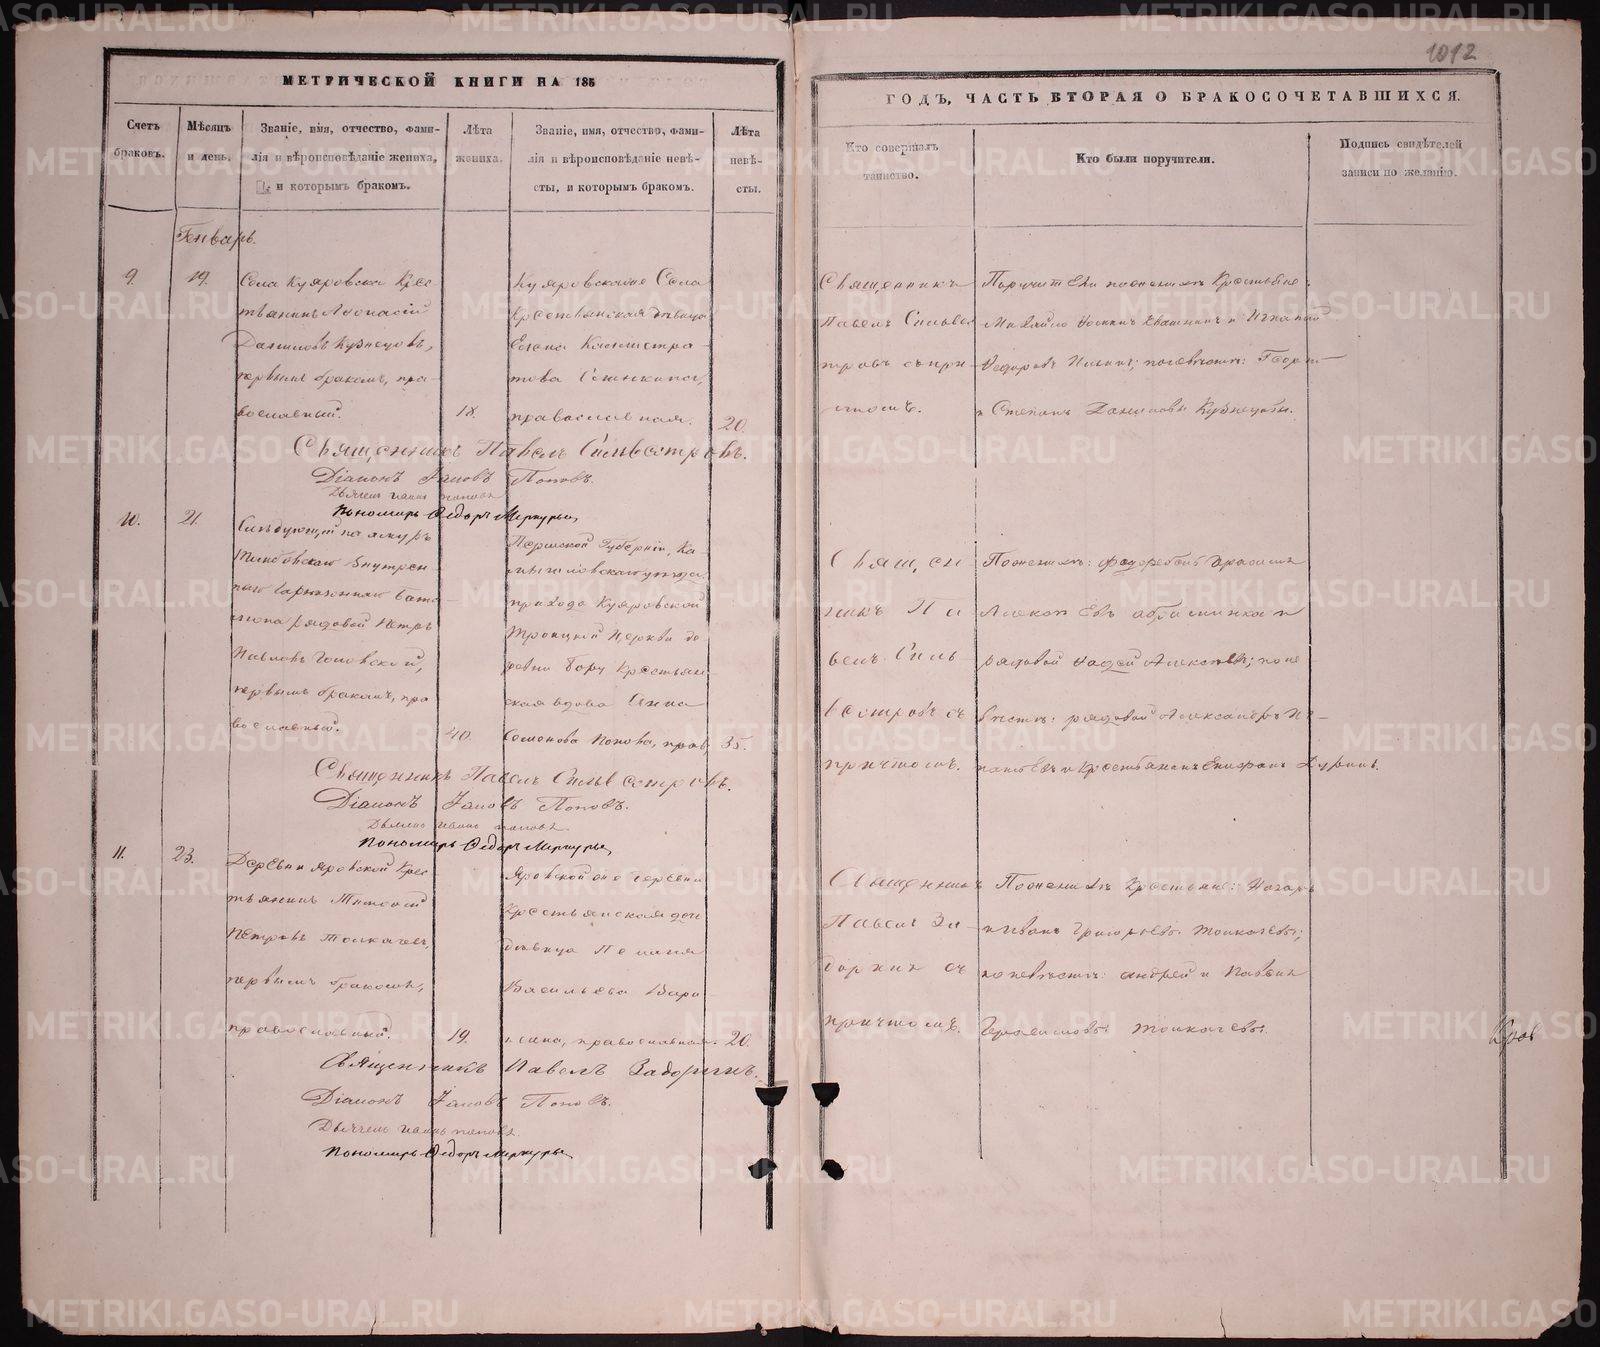 1012
МЕТРИЧЕСКОЙ КНИГИ НА 185
ГОДЪ, ЧАСТЬ ВТОРАЯ О БРАКОСОЧЕТАВШИХСЯ.
Счетъ
браковъ.
Мѣсяцъ
и день.
Званіе, имя, отчество, фами-
лія и вѣроисповѣданіе жениха,
и которымъ бракомъ.
Лѣта
жениха.
Званіе, имя, отчество, фами-
лія и вѣроисповѣданіе невѣ-
сты, и которымъ бракомъ.
Лѣта
невѣ-
сты.
Кто совершалъ
таинство.
Кто были поручители.
Подпись свидѣтелей
записи по желанію.
Генварь.
9.
19.
Села Куяровска Крес
тьянинъ Афонасій
Даниловъ Кузнецовъ,
первымъ бракомъ, пра-
вославный.
18.
Куяровскагоже Села
Крестьянская дѣвица
Елена Калистра-
това
православная.
20.
Священникъ
Павелъ Сильвес
тровъ съ при
чтомъ.
Поручители по женихѣ Крестьяне:
Михайло
Федоровъ Ильинъ; по невѣстѣ: Георгій
и Степанъ Даниловы Кузнецовы.
Священникъ Павелъ Сильвестровъ.
Діаконъ Іаковъ Поповъ.
Дьячекъ Іаннъ Поповъ
Пономарь Ѳедоръ Меркурьевъ
10.
21.
Слѣдующій
Тамбовскаго Внутрен
наго Гарнизоннаго Бата-
ліона рядовой Петръ
Павловъ
первымъ бракомъ, пра
вославный.
40.
Пермской Губерніи, Ка-
мышловскаго уѣзда,
прихода Куяровской
Троицкой Церкви де
ревни Бору Крестьян-
ская вдова Анна
Семенова Попова, прав.
35.
Священ
никъ Па
велъ Силь-
вестровъ съ
причтомъ.
По женихѣ:
рядовой Алексѣевъ; по не
вѣстѣ: рядовой Александръ
и Крестьянинъ Епифанъ
Священникъ Павелъ Сильвестровъ.
Діаконъ Іаковъ Поповъ.
Дьячекъ Іаннъ Поповъ.
Пономарь Ѳедоръ Меркурьевъ
11.
23.
Деревни Яровской Крес
тьянинъ Тимофей
Петровъ Толкачевъ,
первымъ бракомъ,
православный.
19.
Яровской оно деревни
Крестьянская дочь
дѣвица Пелагія
Васильева
православная.
20.
Священникъ
Павелъ За-
доринъ съ
причтомъ.
По женихѣ Крестьяне:
и Иванъ Григорьевы Толкачевы;
по невѣстѣ: Андрей и
Герасимовы Толкачевы.
Священникъ Павелъ Задоринъ.
Діаконъ Іаковъ Поповъ.
Дьячекъ Іаннъ Поповъ.
Пономарь Ѳедоръ Меркурьевъ
METRIKI.GASO-URAL.RU